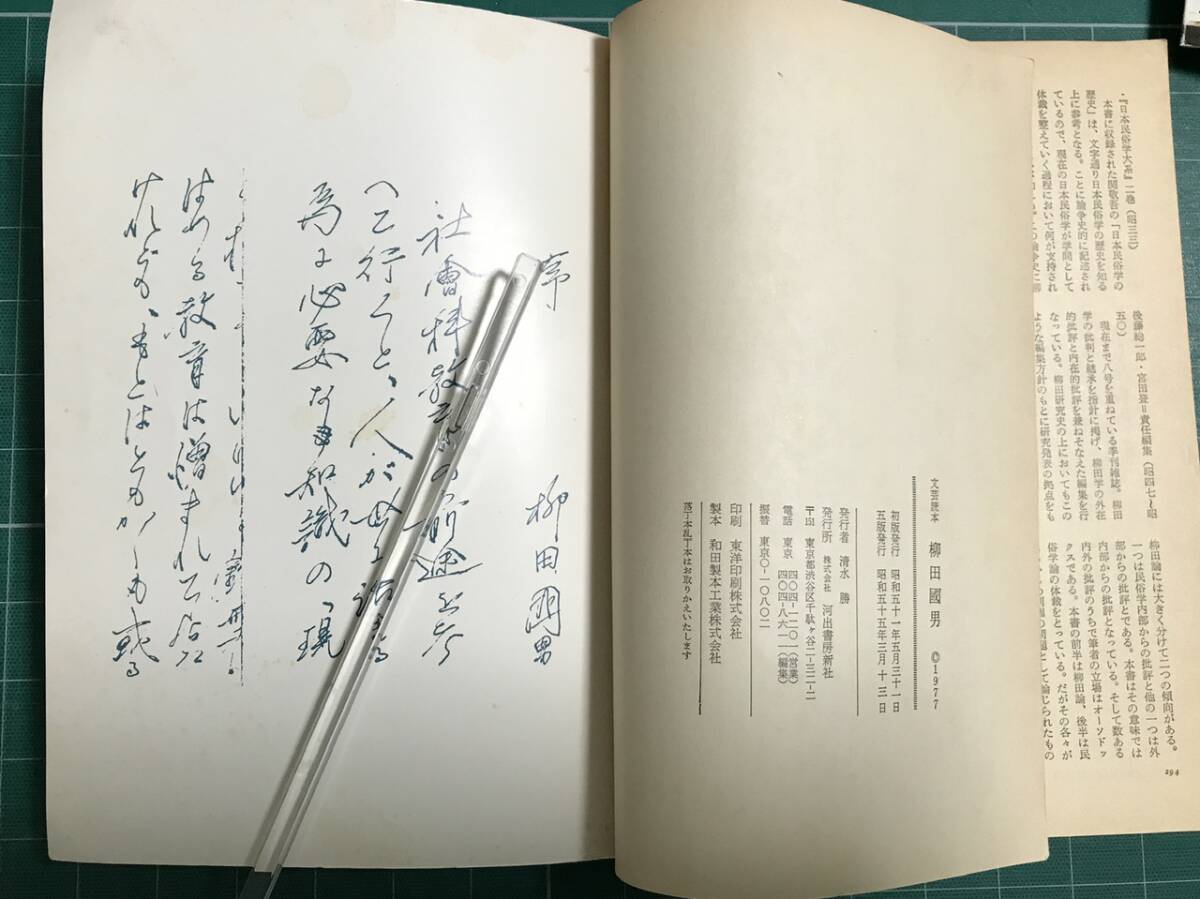 ・『日本民俗学大系』二巻（昭三三）
本書に収録された関敬吾の『日本民俗学の
歴史』は、文字通り日本民俗学の歴史を知る
上に参考となる。ことに論争史的に記述され
ているので、現在の日本民俗学が学問として
体裁を整えていく過程において何が支持され
後藤総一郎・宮田登＝責任編集（昭四七～昭
五〇）
現在まで八号を重ねている季刊雑誌。柳田
学の批判と継承を指針に掲げ、柳田学の外在
的批評と内在的批評を兼ねそなえた編集を行
なっている。柳田研究史の上においてもこの
ような編集方針のもとに研究発表の拠点をも
柳田論には大きく分けて二つの傾向がある。
一つは民俗学内部からの批評と他の一つは外
部からの批評とである。本書はその意味では
内部からの批評となっている。そして数ある
内外の批評のうちで筆者の立場はオーソドッ
クスである。本書の前半は柳田論、後半は民
俗学論の体裁をとっている。だがその各々が
の問題として論じられたもの
294
文芸読本 柳田國男 ©1977
初版発行 昭和五十一年五月三十一日
五版発行 昭和五十五年三月十三日
発行者 清水勝
発行所 株式会社 河出書房新社
〒151 東京都渋谷区千駄ケ谷二-三二-二
電話 東京 四〇四-一二〇一（営業）
四〇四-八六一一（編集）
振替 東京〇-一〇八〇二
印刷 東洋印刷株式会社
製本 和田製本工業株式会社
落丁本乱丁本はお取りかえいたします
序 柳田國男
社會科教育の前途を考
へて行くと、人が世に活きる
為に必要な知識の、現
はゆる教育は憎まれて居た
けれども、もとはともかくも或る